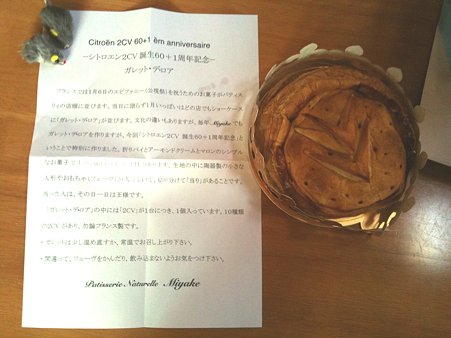 Citroën 2CV 60+1 èm anniversaire
―シトロエン2CV 誕生60+1周年記念―
ガレット・デ・ロア
フランスでは1月6日のエピファニー(公現祭)を祝うためのお菓子がパティス
リの店棚に並びます。当日に限らず1月いっぱいはどの店でもショーケース
に「ガレット・デ・ロア」が並びます。文化の違いもありますが、毎年、Miyakeでも
ガレット・デ・ロアを作りますが、今回「シトロエン2CV 誕生60+1周年記念」と
いうことで特別に作りました。折りパイとアーモンドクリームとマロンのシンプル
なお菓子 生地の中に陶器製の小さな
人形やおもちゃ 切り分けて「当り」があることです。
人は、その日一日は王様です。
「ガレット・デ・ロア」の中には「2CV」が1台につき、1個入っています。10種類
の2CVがあり、勿論フランス製です。
少し温め直すか、常温でお召し上がり下さい。
・間違って、フェーヴをかんだり、飲み込まないようお気をつけ下さい。
Patisserie Naturelle Miyake